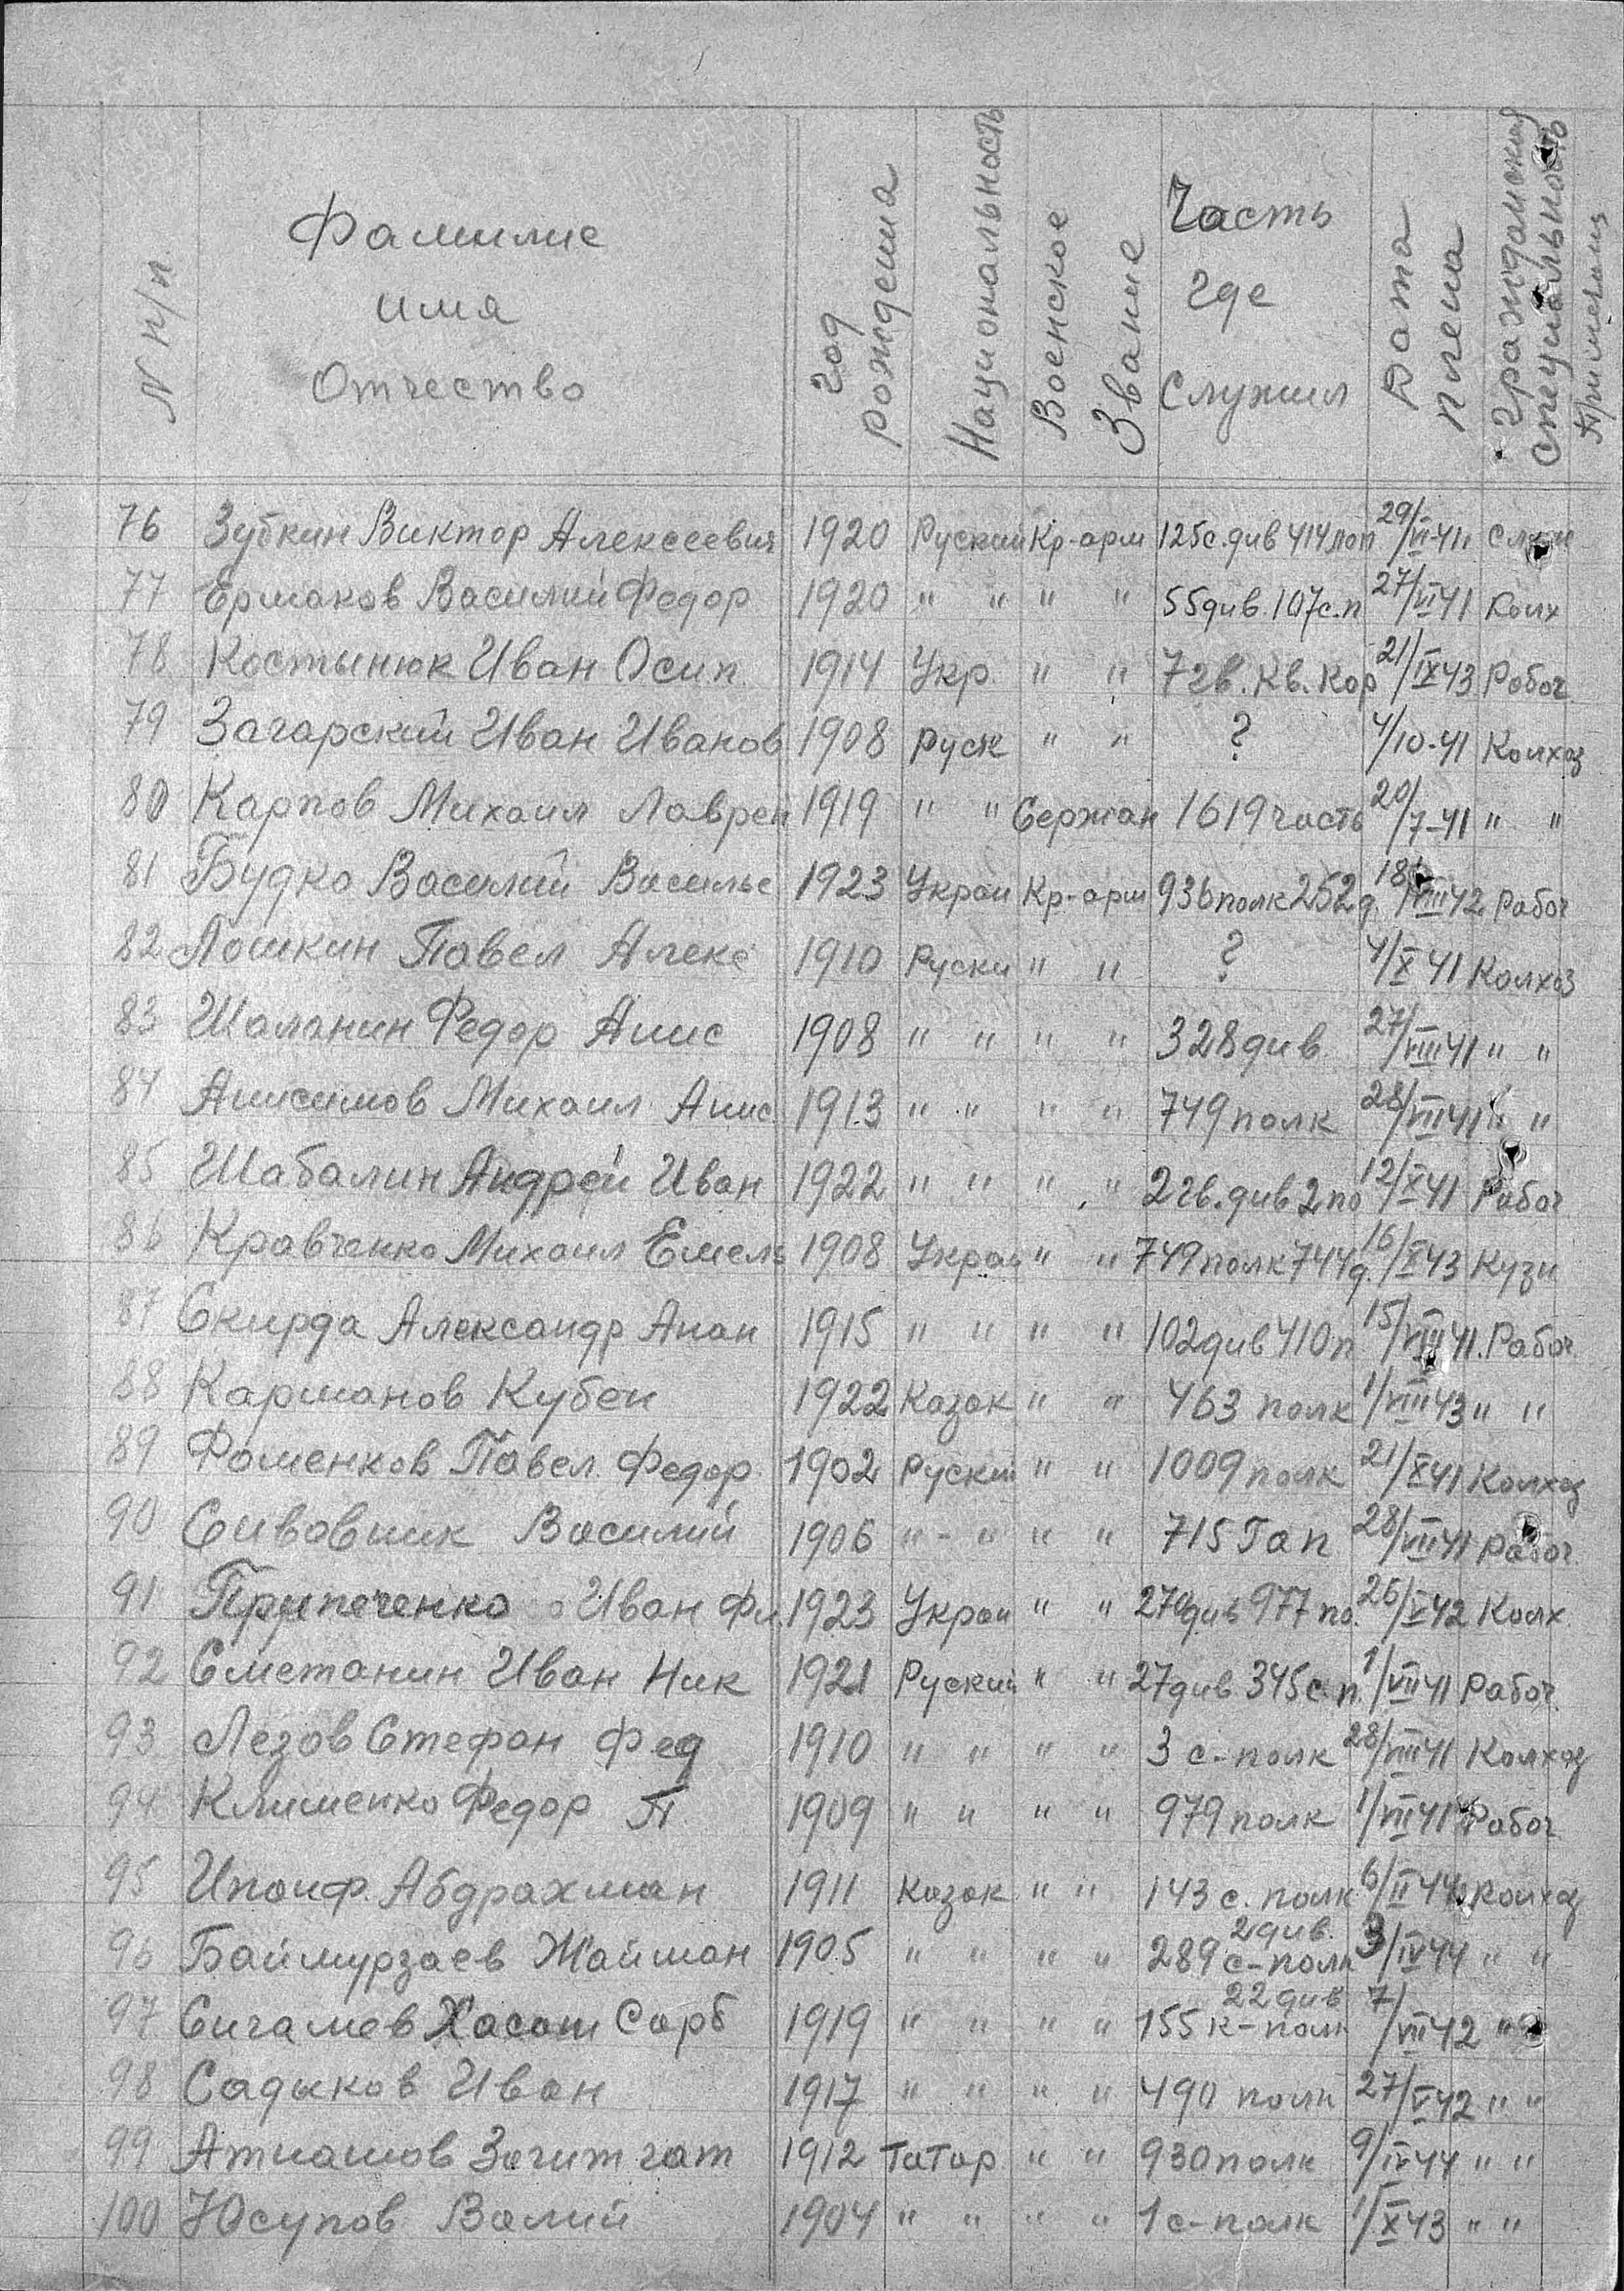 N п/п Фамилие имя Отчество год рождения Национальность Военское Звание Часть где Служил Дата плена гражданская специальность Примечания
76 Зубкин Виктор Алексеевич 1920 Руский Кр-арм 125с.див 414 29/VI-41 Служ
77 Ермаков Василий Федор 1920 " " " " 55див.107с.п 27/VI41 Колх
78 Костынюк Иван Осип. 1914 Укр. " " 7гв.Кв.Кор 21/IX43 Робоч
79 Загарский Иван Иванов 1908 Руск " " ? 4/10-41 Колхоз
80 Карпов Михаил Лаврен 1919 " " Сержан 1619часть 20/7-41 " "
81 Будко Василий Василье 1923 Украи Кр-арм 936полк252д. 18/VIII42 Рабоч
82 Лошкин Павел Алекс 1910 Руски " " ? 4/X 41 Колхоз
83 Шаланин Федор Анис 1908 " " " " 328див 27/VIII41 " "
84 Анисимов Михаил Анис 1913 " " " " 749полк 28/VIII41 " "
85 Шабалин Андрей Иван 1922 " " " " 2гв.див2по 12/X41 Рабоч
86 Кравченко Михаил Емель 1908 Украи " " 749полк744д. 16/X43 Кузн
87 Скирда Александр Апан 1915 " " " " 102див410п 15/VIII41. Рабоч
88 Карманов Кубен 1922 Казак " " 463 полк 1/VIII43 " "
89 Фоменков Павел Федор 1902 Руский " " 1009полк 21/X41 Колхоз
90 Сивовник Василий 1906 " - " " " 715 Гап 28/VII41 Рабоч
91 Прупеченко Иван Фи. 1923 Украи " " 270див 977 по. 26/V42 Колх
92 Сметанин Иван Ник 1921 Руский " " 27див 345с.п. 1/VII41 Рабоч.
93 Лезов Стефан Фед 1910 " " " " 3 с-полк 28/VIII41 Колхоз
94 Клименко Федор П 1909 " " " " 979полк 1/VIII41 Рабоч
95 Ипаиф. Абдрахман 1911 Казак " " 143 с. полк 6/II44 Колхоз
96 Баймурзаев Жайман 1905 " " " " 289 2див. с-полк 3/IV44 " "
97 Сигамев Хасан Сарб 1919 " " " " 155 22див к-полк 7/VII42 "
98 Садыков Иван 1917 " " " " 490 полк 27/V42 " "
99 Атнашов Загит гат 1912 Татар " " 930полк 9/IV44 " "
100 Юсупов Валий 1904 " " " " 1с-полк 1/X43 " "